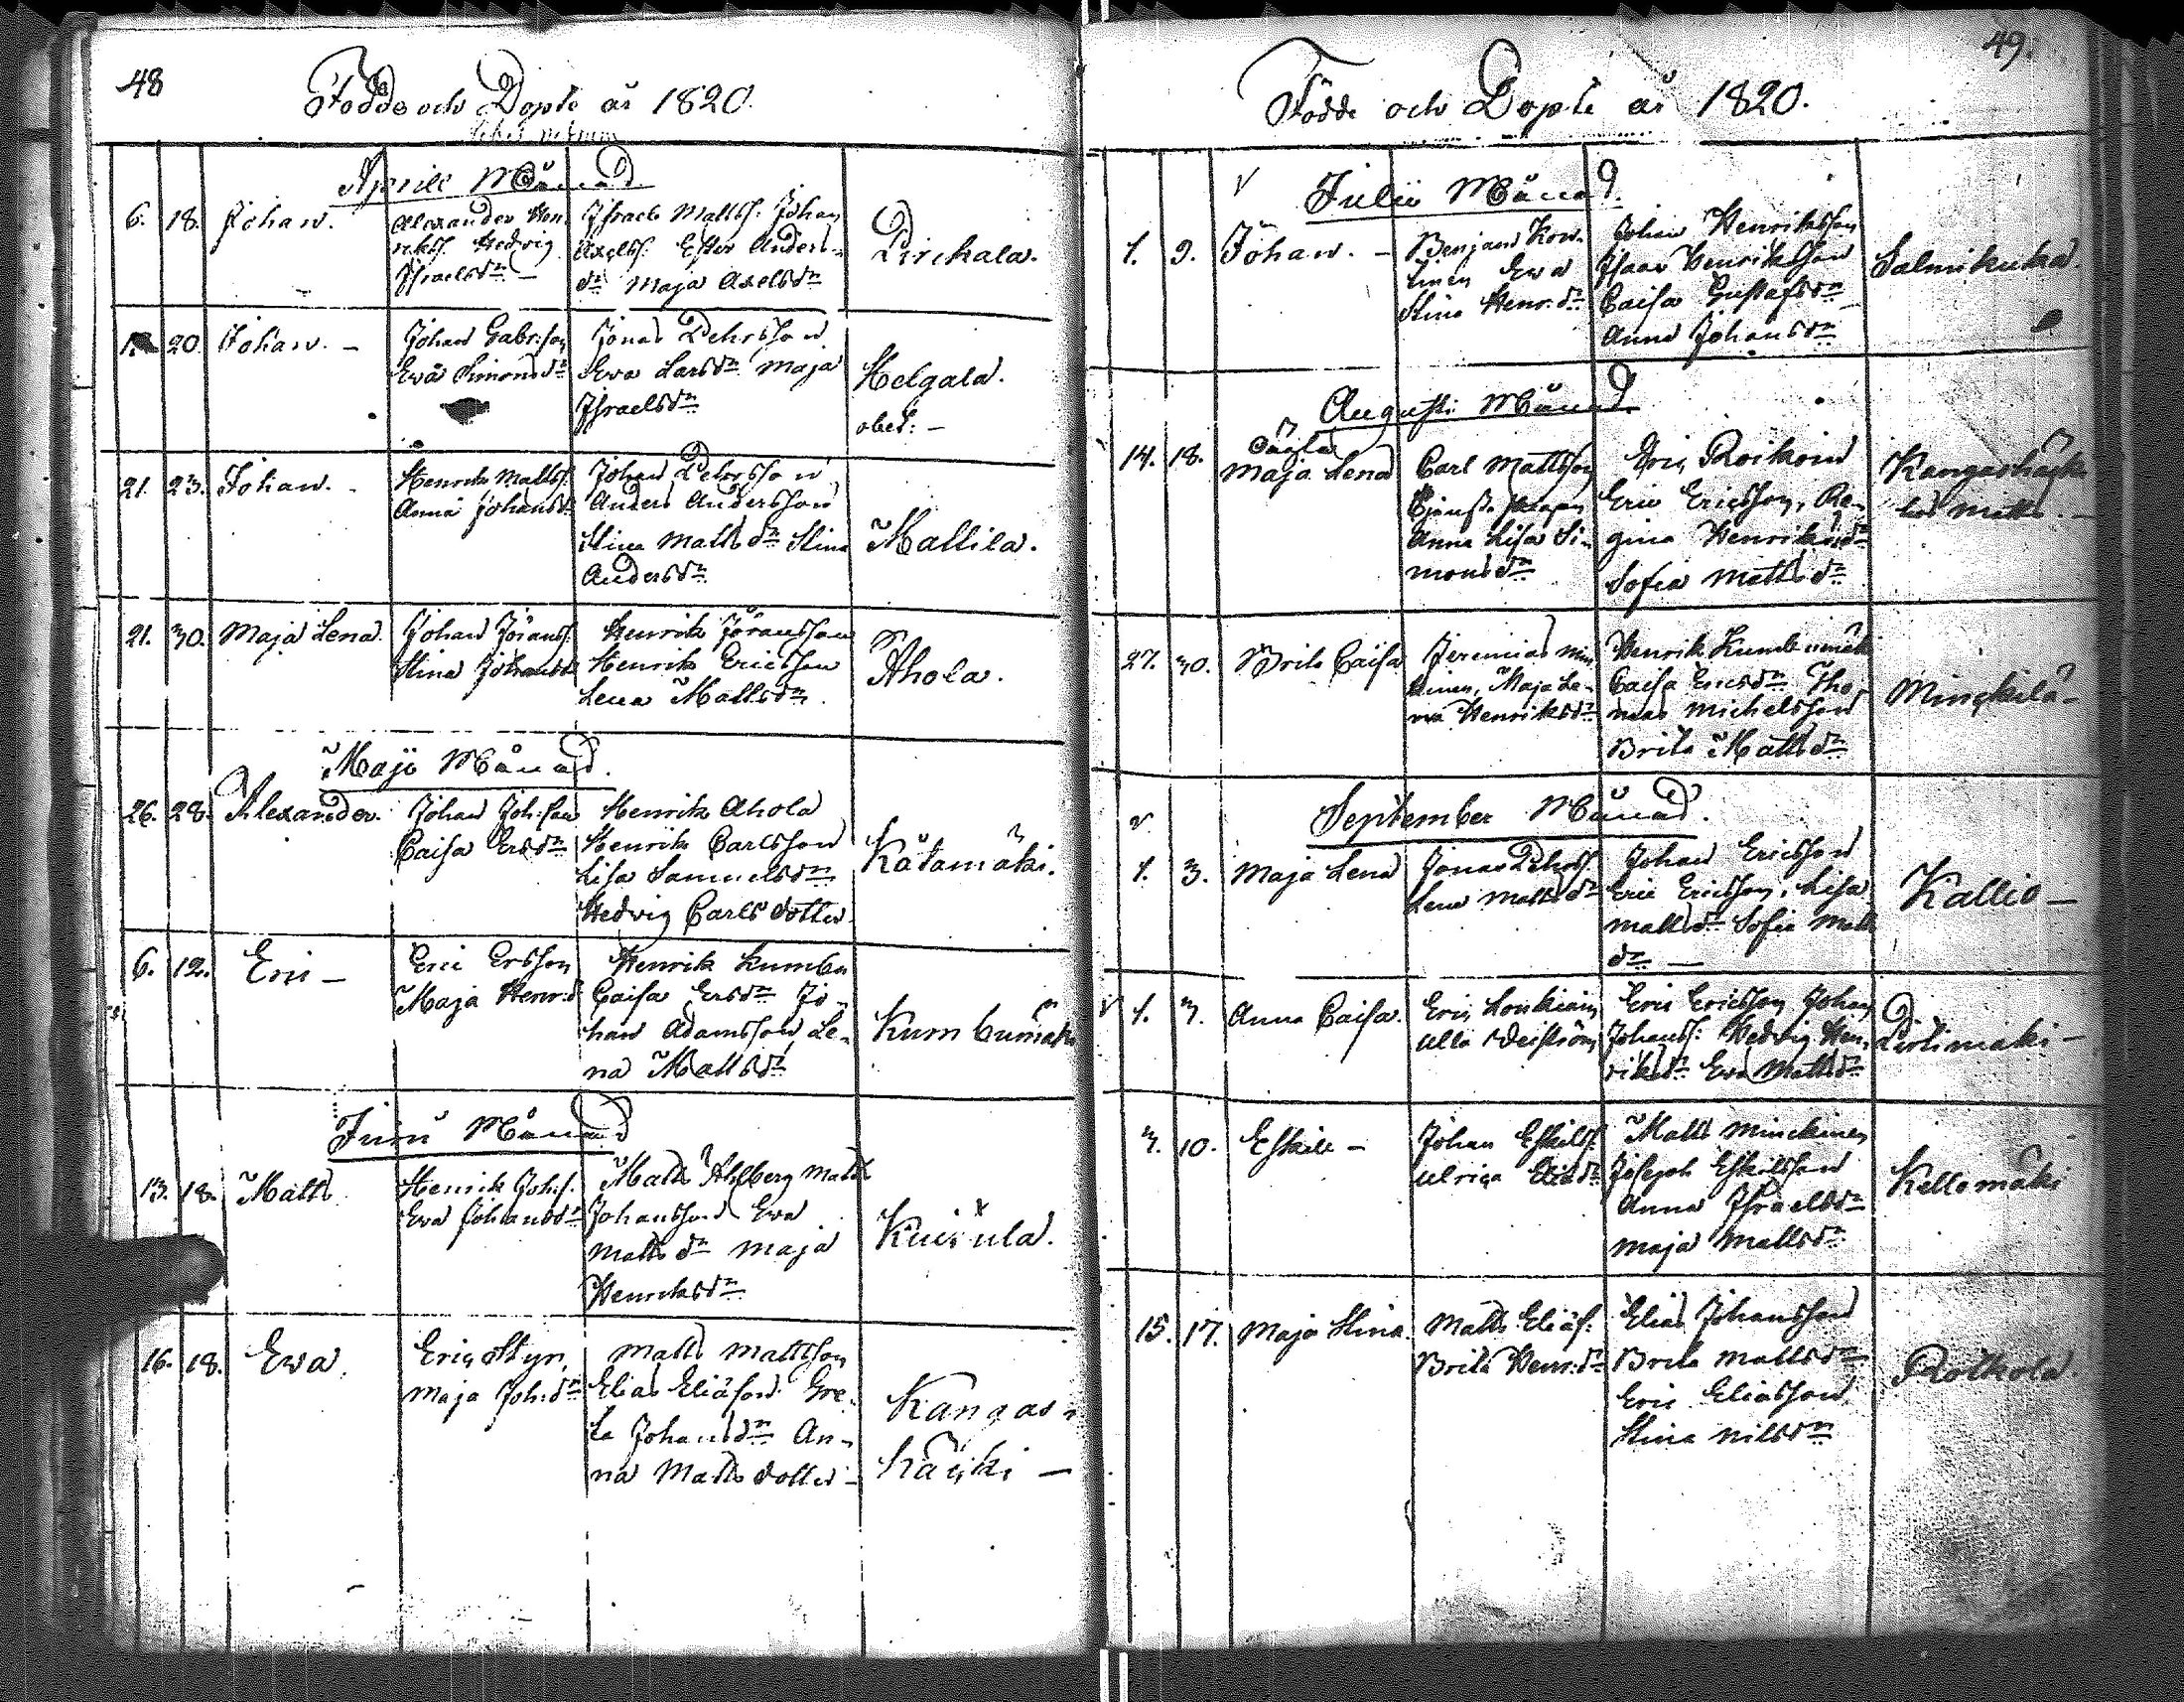 48
Födde och Döpte år 1820.
Aprill Månad
6. 18. Johan.
Alexander Hen-
rikss. Hedvig
Israelsdr —
Israel Mattss. Johan
Axelss. Ester Anders-
dr Maja Axelsdr
Pirckala.
20. Johan. —
Johan Gabr.son
Ewa Simonsdr
Jonas Pehrsson
Ewa Larsdr Maja
Israelsdr
Helgala.
obet: —
21. 23. Johan.
Henrik Mattss.
Anna Johansdr
Johan Pehrsson
Anders Andersson
Stina Mattsdr Stina
Andersdr
Mattila.
21. 30. Maja Lena.
Johan Jöranss.
Stina Johansdr
Henrik Jöransson
Henrik Ericsson
Lena Mattsdr
Ahola.
Maji Månad.
26. 28. Alexander.
Johan Joh:son
Caisa Ersdr
Henrik Ahola
Henrik Carlsson
Lisa Samuelsdr
Hedvig Carlsdotter
Kätamäki.
6. 12. Eric —
Eric Ersson
Maja Henr:d
Henrik Kumbu
Caisa Ersdr Jo-
han Adamsson Le-
na Mattsdr
Kumbumäki
Junii Månad
13. 18. Matts
Henrik Joh:s.
Ewa Johansdr
Matts Ahlberg Matts
Johansson Ewa
Mattsdr Maja
Henriksdr
Kuixula.
16. 18. Ewa.
Eric Styr,
Maja Joh:dr
Matts Mattsson
Elias Eliäson Gre-
ta Johansdr An-
na Mattsdotter —
Kangas-
häcki —
49.
Födde och Döpte år 1820.
Julii Månad.
1. 9. Johan. —
Benjam Kow-
linen Ewa
Stina Henr:dr
Johan Henriksson
Isaac Henriksson
Caisa Gustafsdr
Anna Johansdr
Salmikuka.
Augusti Månad.
14. 18. oägta
Maja Lena
Carl Mattsson
Anna Lisa Si-
monsdr
Eric Roikoin
Eric Ericsson, Re-
gina Henriksdr
Sofia Mattsdr
27. 30. Brita Caisa
Jeremias Min-
kinen, Maja Le-
na Henriksdr
Henrik Kumbumäki
Caisa Ericsdr Tho-
mas Michelsson
Brita Mattsdr
Minckilä —
September Månad.
1. 3. Maja Lena
Jonas Pehrss.
Lena Mattsdr
Johan Ericsson
Eric Ericsson, Lisa
Mattsdr Sofia Matts
dr —
Kallio —
1. 3. Anna Caisa.
Ulla
Eric Ericsson Johan
Johanss: Hedvig Hen-
riksdr Ewa Mattsdr
Pirtimäki —
3. 10. Eskill —
Johan Eskilss.
Ulrica Eliedr
Matts Minckinen
Joseph Eskilsson
Anna Israelsdr
Maja Mattsdr
Kellomäki
15. 17. Maja Stina.
Matts Eliäs:
Brita Henr:dr
Elias Johansson
Brita Mattsdr
Eric Eliasson
Stina Nilsdr
Roikola.